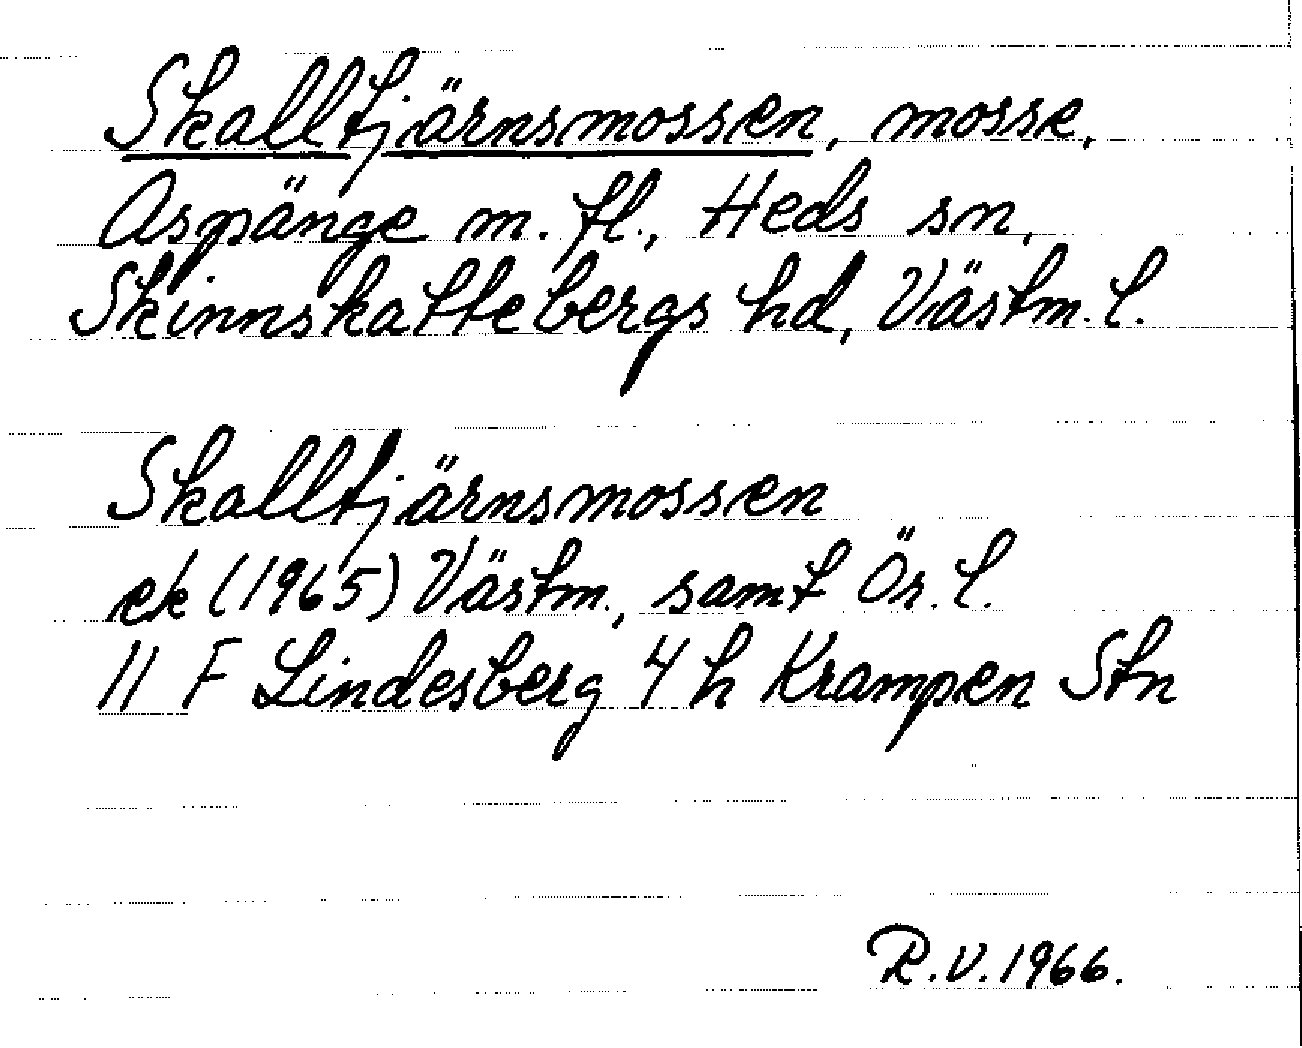 Skalltjärnsmossen, mosse,
Aspänge m. fl., Heds sn,
Skinnskattebergs hd, Västm. l.
Skalltjärnsmossen
ek (1965) Västm., samt Ör. l.
11 F Lindesberg 4 h Krampen Stn
R.V. 1966.